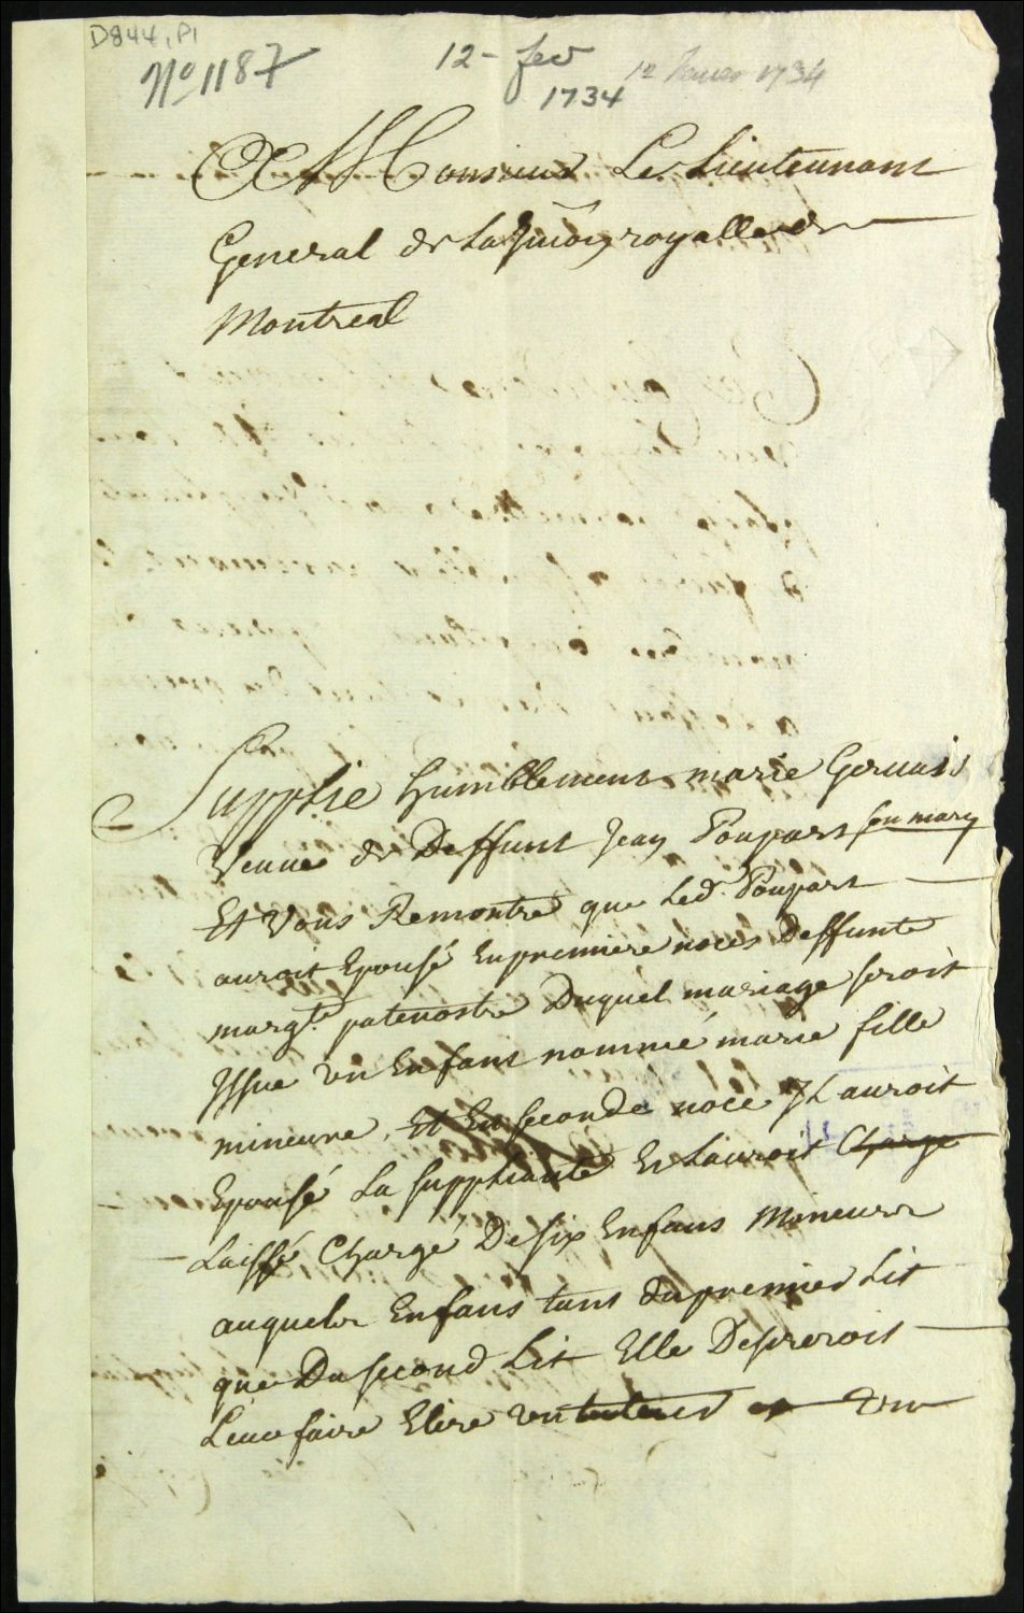 D844, P1
No 1187
12 - fev
1734
12 fevrier 1734
A Monsieur Le Lieutennant
General de La Juri͠on royalle de
Montreal
Supplie humblement marie Geruais
Veuue de Deffunt Jean Poupart son mary
Et Vous Remontre que Led. Poupart
auroit Epousé En premiere noces Deffunte
margte. patenostre Duquel mariage seroit
Issue un Enfant nommé marie fille
mineure, Et En seconde noce Il auroit
Epousé La suppliante Et Lauroit Charge
Laissé Chargé De six Enfans Mineurs
auquels Enfans tant du premier Lit
que Du second Lit Elle Desireroit
Leur faire Elire un tuteur et un